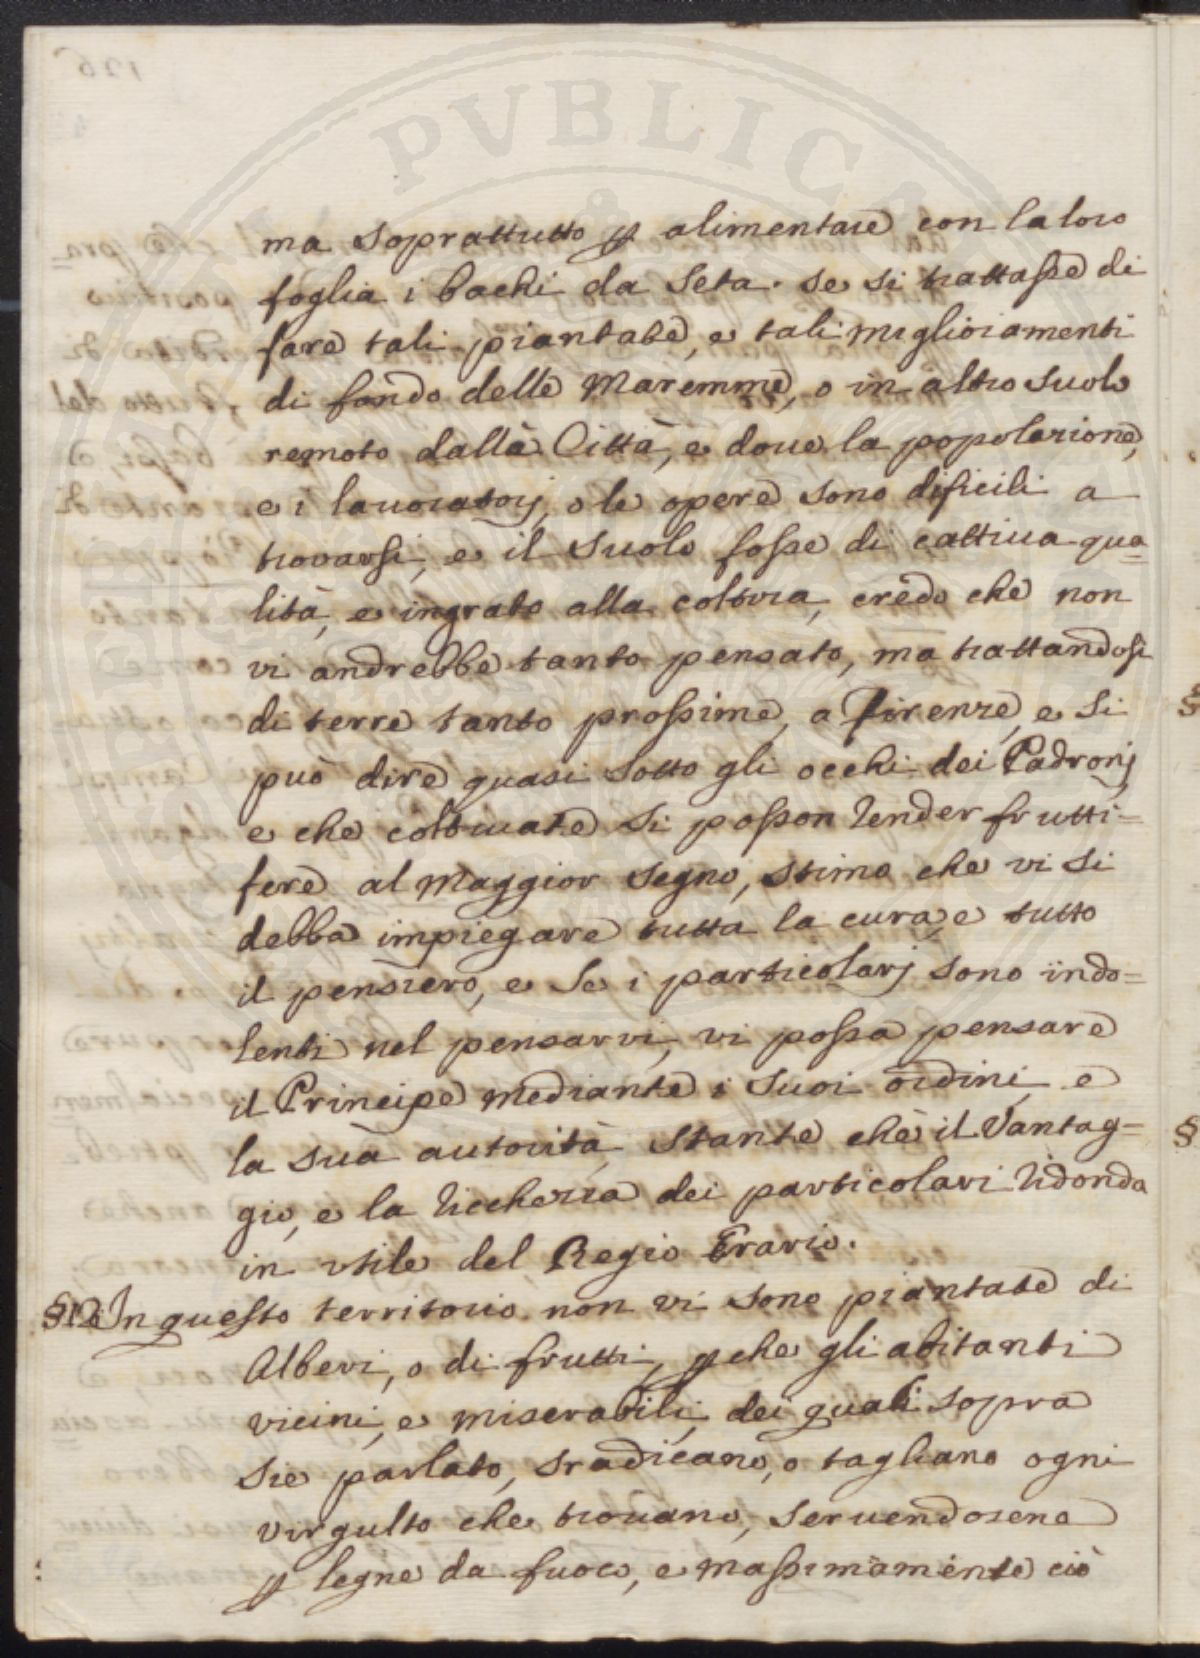 ma soprattutto p alimentare con la loro
foglia i bachi da Seta. se si trattasse di
fare tali piantate, e tali miglioramenti
di fondo delle Maremme, o in altro suolo
remoto dalla Città, e doue la popolazione,
e i lauoratorj, o le opere sono dificili a
trovarsi, e il suolo fosse di cattiua qua=
lità, e ingrato alla coltura, credo che non
vi andrebbe tanto pensato, ma trattandosi
di terre tanto prossime, a Firenze, e si
può dire quasi sotto gli occhi dei Padronj
e che coltiuate si posson render frutti=
fere al Maggior segno, stimo che vi si
debba impiegare tutta la cura, e tutto
il pensiero, e se i particolarj sono indo=
lenti nel pensarvi, vi possa pensare
il Principe mediante i suoi ordini, e
la sua autorità, stante che il Vantag=
gio, e la ricchezza dei particolari ridonda
in vtile del Regio Erario.
§12 In questo territorio non vi sono piantate di
Alberi, o di frutti, pche gli abitanti
vicini, e miserabili, dei quali sopra
sie parlato, sradicano, o tagliano ogni
virgulto che trouano, seruendosene
p legne da fuoco, e massimamente ciò
PVBLICA